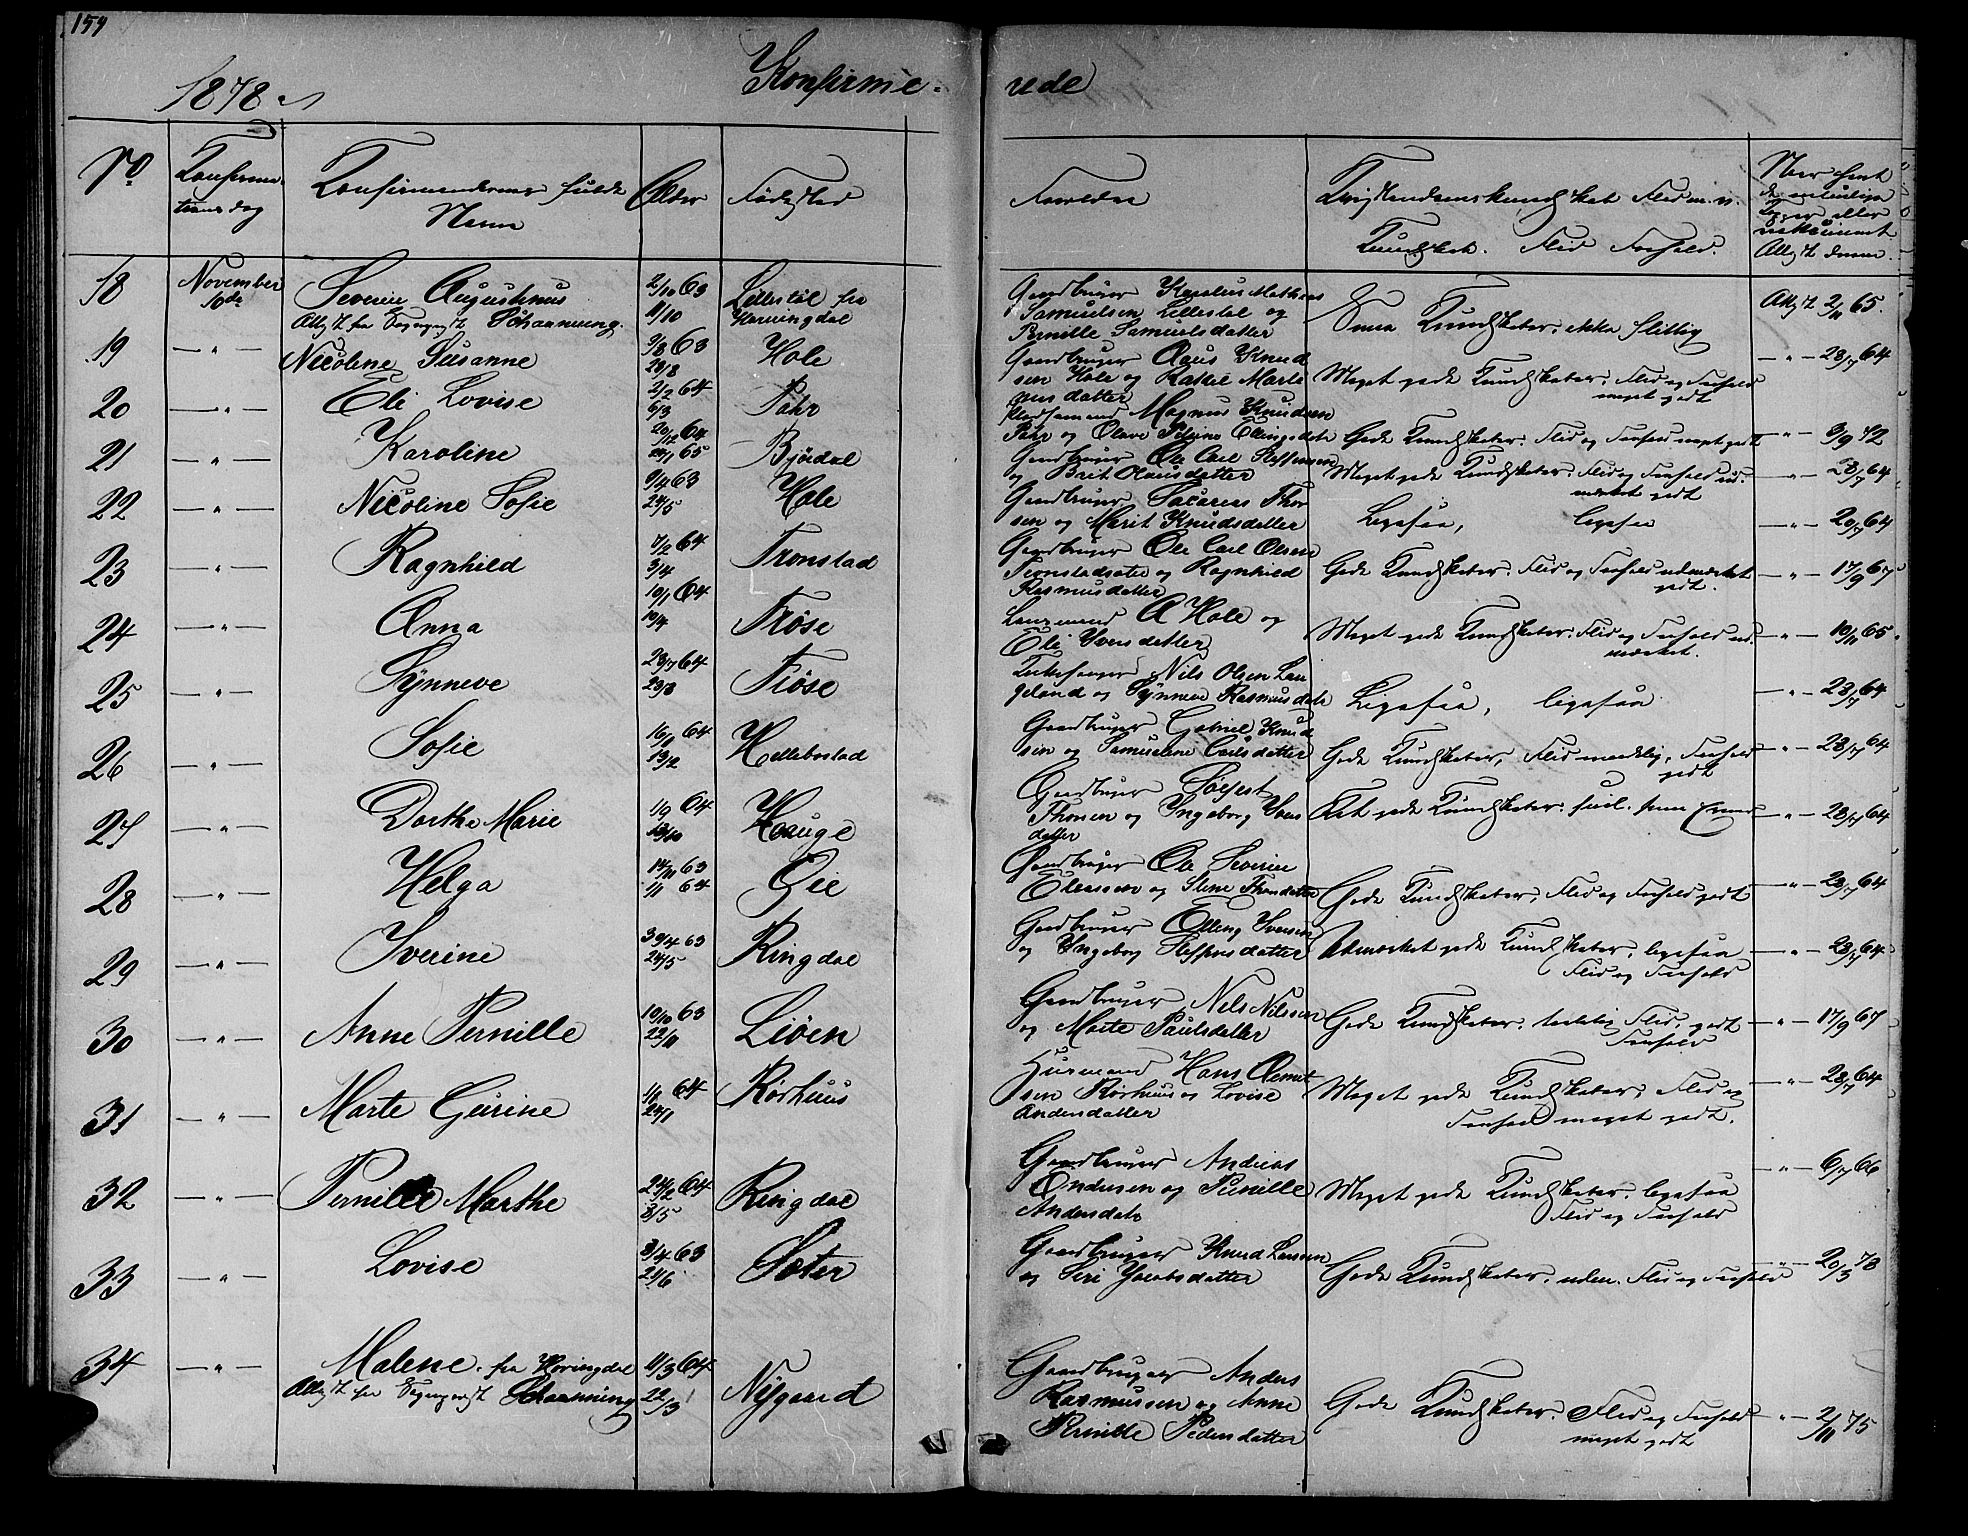 159
1878
Konfirme-
rede
No
Konfirma-
tions dag
Konfirmandernes fulde
Navn
Alder
Fødested
Forældre
Kristendomskundskab Flid m. v.
Kundskab. Flid Forhold.
Naar havt
de naturlige
Kopper eller
vakcineret
18 November 10de Severin Augustinus 2/10 63 Lillestøl fra
Attest fra Sogneprest Schanning. 11/10 Havningdal
Gaardbruger Karolus Mathias
Samuelsen Lillestøl og
Pernille Samuelsdatter
Smaa Kundskaber, ikke flittig
Att. 2/11 65.
19 — " — Nicoline Susanne 9/8 63 Hole
29/8
Gaardbruger Claus Knud
sen Hole og Rakel Marti
nusdatter
Meget gode Kundskaber, Flid og Forhold
meget godt
— " — 28/7 64
20 — " — Eli Lovise 2/2 64 Pahr
6/3
Pladsmand Magnus Knudsen
Pahr og Olave Petrine Ellingsdatr
Gode Kundskaber. Flid og Forhold meget godt
— " — 3/9 72
21 — " — Karoline 20/12 64 Bjørdal
24/1 65
Gaardbruger Ole Carl Steffensen
og Brit Olausdatter
Meget gode Kundskaber. Flid og Forhold ud-
mærket godt
— " — 28/7 64
22 — " — Nicoline Sofie 9/4 63 Hole
24/5
Gaardbruger Sacarias Thor
sen og Marit Knudsdatter
Ligesaa, ligesaa
— " — 20/7 64
23 — " — Ragnhild 7/2 64 Tronstad
3/4
Gaardbruger Ole Carl Olsen
Tronstadsæter og Ragnhild
Rasmusdatter
Gode Kundskaber. Flid og Forhold udmærket
godt.
— " — 17/9 67
24 — " — Anna 10/1 64 Frøse
10/4
Lensmand A Hole og
Eli Iversdatter
Meget gode Kundskaber. Flid og Forhold ud-
mærket.
— " — 10/11 65
25 — " — Synneve 28/7 64 Frøse
28/8
Kirkesanger Nils Olsen Lan
geland og Synneve Rasmusdatr
Ligesaa, ligesaa
— " — 28/7 64
26 — " — Sofie 16/1 64 Hellebostad
13/2
Gaardbruger Gabriel Knud
sen og Samueline Carlsdatter
Gode Kundskaber, Flid maadelig, Forhold
godt
— " — 28/7 64
27 — " — Dorthe Marie 1/9 64 Hauge
Gaardbruger
Thorsen og Ingeborg Ivers
datter
gode Kundskaber.
— " — 28/7 64
28 — " — Helga 14/11 63 Gie
1/1 64
Gaardbruger Ole Severin
Eliassen og Stine Thorsdatter
Gode Kundskaber, Flid og Forhold godt
— " — 28/7 64
29 — " — Iverine 30/4 63 Ringdal
24/5
Gaardbruger Elling Iversen
og Ingeborg Steffensdatter
Udmærket gode Kundskaber, ligesaa
Flid og Forhold
— " — 28/7 64
30 — " — Anne Pernille 10/10 63 Liøen
22/11
Gaardbruger Nels Nilssen
og Marte Paulsdatter
Gode Kundskaber, Flid, godt
Forhold
— " — 17/9 67
31 — " — Marte Gurine 1/1 64 Rørhuus
24/1
Huusmand Hans Clemet
sen Rørhuus og Lovise
Andersdatter
Meget gode Kundskaber, Flid og
Forhold meget godt.
— " — 28/7 64
32 — " — Pernille Marthe 24/2 64 Ringdal
8/5
Gaardbruger Andreas
Andersen og Pernille
Andersdatr
Meget gode Kundskaber, ligesaa
Flid og Forhold
— " — 6/7 66
33 — " — Lovise 3/4 63 Sæter
21/6
Gaardbruger Knud Larssen
og Siri Jacobsdatter
Gode Kundskaber, udm. Flid og Forhold
— " — 20/3 78
34 — " — Malene. fra Havringdal 11/3 64 Nygaard
Attest fra Sogneprest Schanning 22/3
Gaardbruger Anders
Rasmussen og Anne
Pernille Pedersdatter
Gode Kundskaber. Flid og Forhold
meget godt
— " — 2/11 75